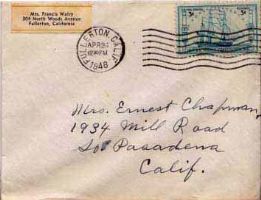 Mrs. Francis Welty
204 North Woods Avenue
Fullerton, California
FULLERTON, CALIF.
APR 24
PM
1948
3¢
3¢
Mrs. Ernest Chapman,
1934 Mill Road
So. Pasadena
Calif.